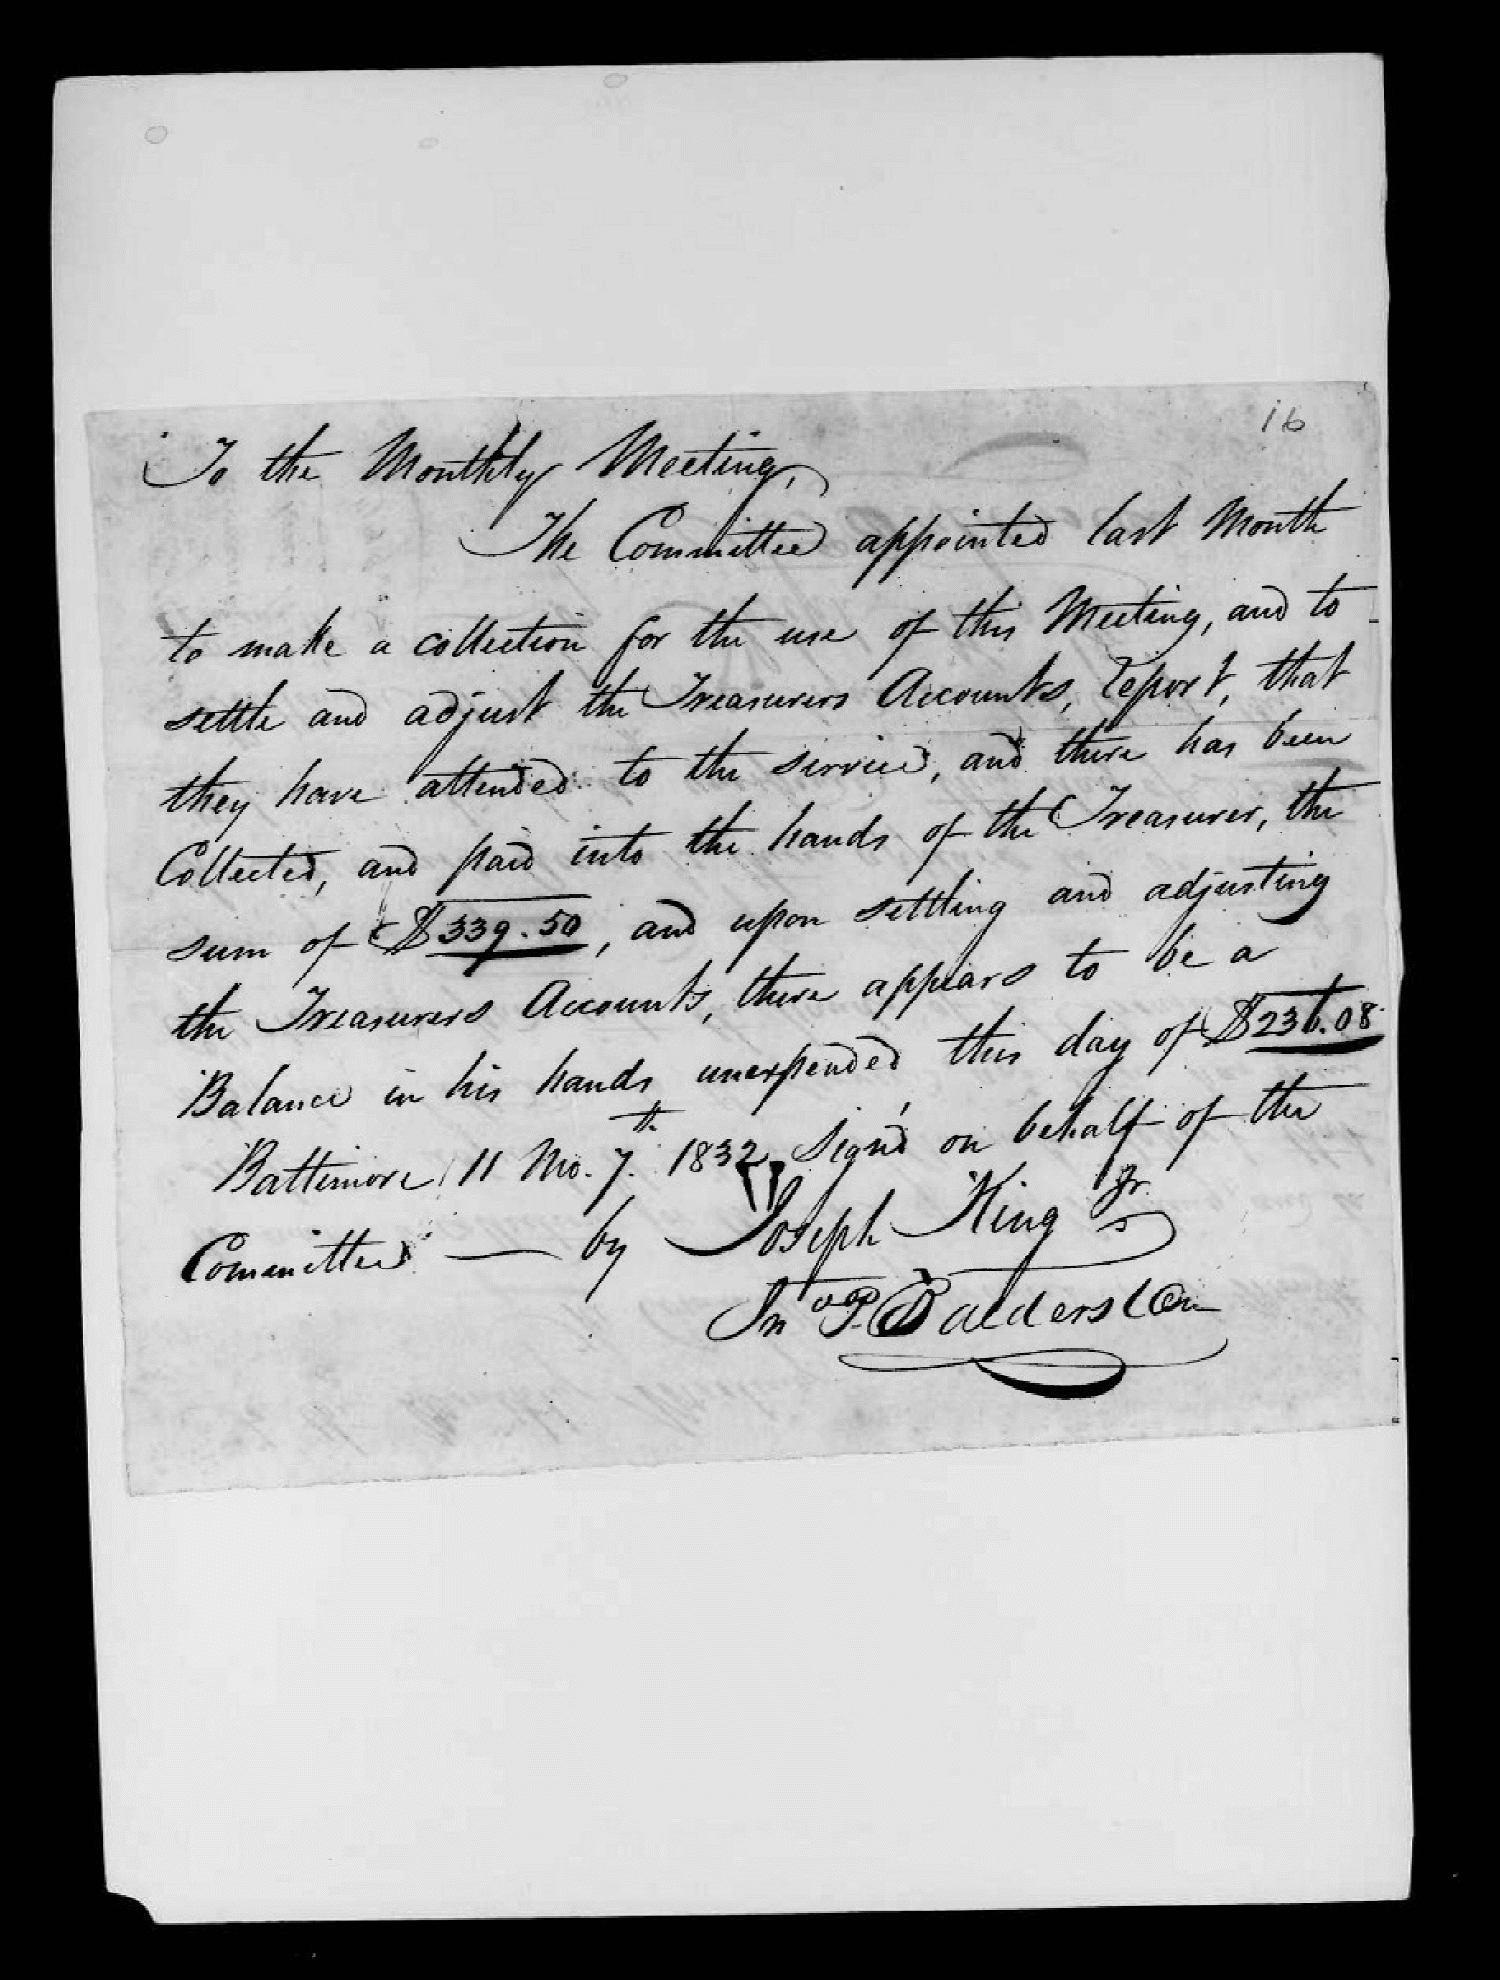 16
To the Monthly Meeting,
The Committee appointed last Month
to make a collection for the use of this Meeting, and to
settle and adjust the Treasurers Accounts, report, that
they have attended to the service, and there has been
Collected, and paid into the hands of the Treasurer, the
sum of $339.50, and upon settling and adjusting
the Treasurers Accounts, there appears to be a
Balance in his hands unexpended this day of $236.08
Baltimore 11 Mo. 7th 1832 Sign'd on behalf of the
Committee — by Joseph King Jr
Jno P. Balderston